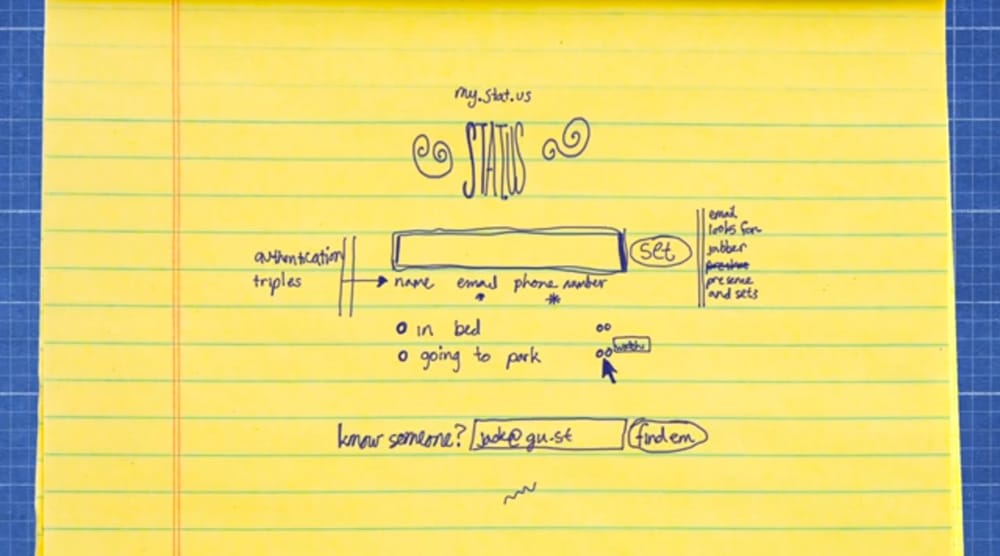 my.stat.us
STATUS
set
authentication
triples
name email phone number
* *
email
looks for
jabber
presence
and sets
in bed
going to park
watch
know someone? jack@gu.st find em